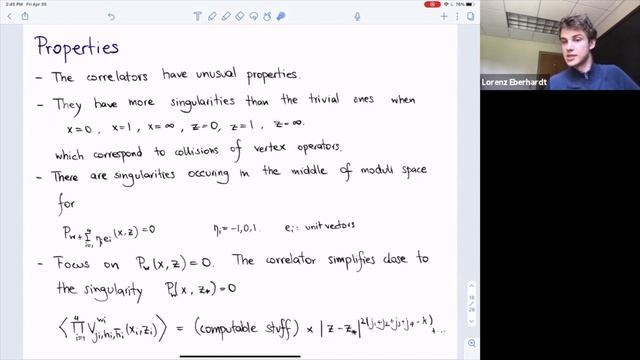 2:45 PM Fri Apr 30
76%
Properties
Lorenz Eberhardt
- The correlators have unusual properties.
- They have more singularities than the trivial ones when
x=0, x=1, x=∞, z=0, z=1, z=∞.
which correspond to collisions of vertex operators.
- There are singularities occuring in the middle of moduli space
for
P_{w+∑_{i=1}^{4} η_i e_i}(x,z)=0 η_i=-1,0,1. e_i: unit vectors
- Focus on P_w(x,z)=0. The correlator simplifies close to
the singularity P_w(x,z_*)=0
⟨∏_{i=1}^{4} V_{j_i,h_i,h̄_i}^{w_i}(x_i,z_i)⟩ = (computable stuff) × |z-z_*|^{2(j_1+j_2+j_3+j_4-k)}+...
18
28